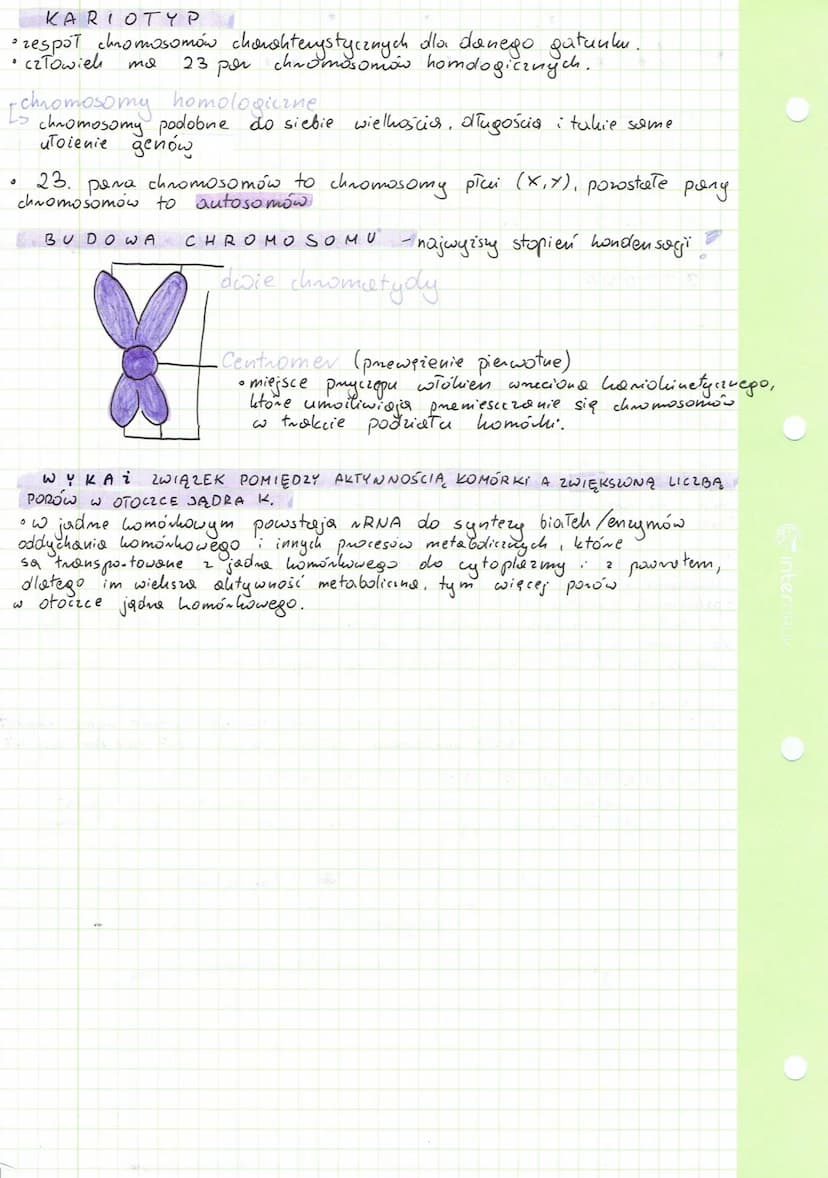 KARIOTYP
• zespół chromosomów charakterystycznych dla danego gatunku.
• człowiek ma 23 par chromosomów homologicznych.
chromosomy homologiczne
↳ chromosomy podobne do siebie wielkością, długością i takie same
ułożenie genów
• 23. para chromosomów to chromosomy płci (X,Y), pozostałe pary
chromosomów to autosomów
BUDOWA CHROMOSOMU - najwyższy stopień kondensacji!
dwie chromatydy
Centromer (przewężenie pierwotne)
• miejsce przyczepu włókien wrzeciona kariokinetycznego,
które umożliwiają przemieszczanie się chromosomów
w trakcie podziału komórki.
WYKAŻ ZWIĄZEK POMIĘDZY AKTYWNOŚCIĄ KOMÓRKI A ZWIĘKSZONĄ LICZBĄ
PORÓW W OTOCZCE JĄDRA K.
• w jądrze komórkowym powstają rRNA do syntezy białek/enzymów
oddychania komórkowego i innych procesów metabolicznych, które
są transportowane z jądra komórkowego do cytoplazmy i z powrotem,
dlatego im większa aktywność metaboliczna, tym więcej porów
w otoczce jądra komórkowego.
interdruk